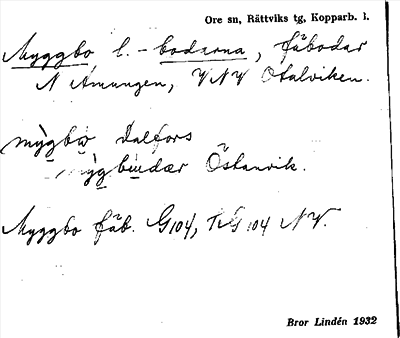 Ore sn, Rättviks tg, Kopparb. l.
Myggbo, l. -bodarna, fäbodar
N Amungen, VNV Ofalviken.
mỳgbω Dalfors
mỳgbωdær Östanvik.
Myggbo fäb. G104, TG104 NV.
Bror Lindén 1932